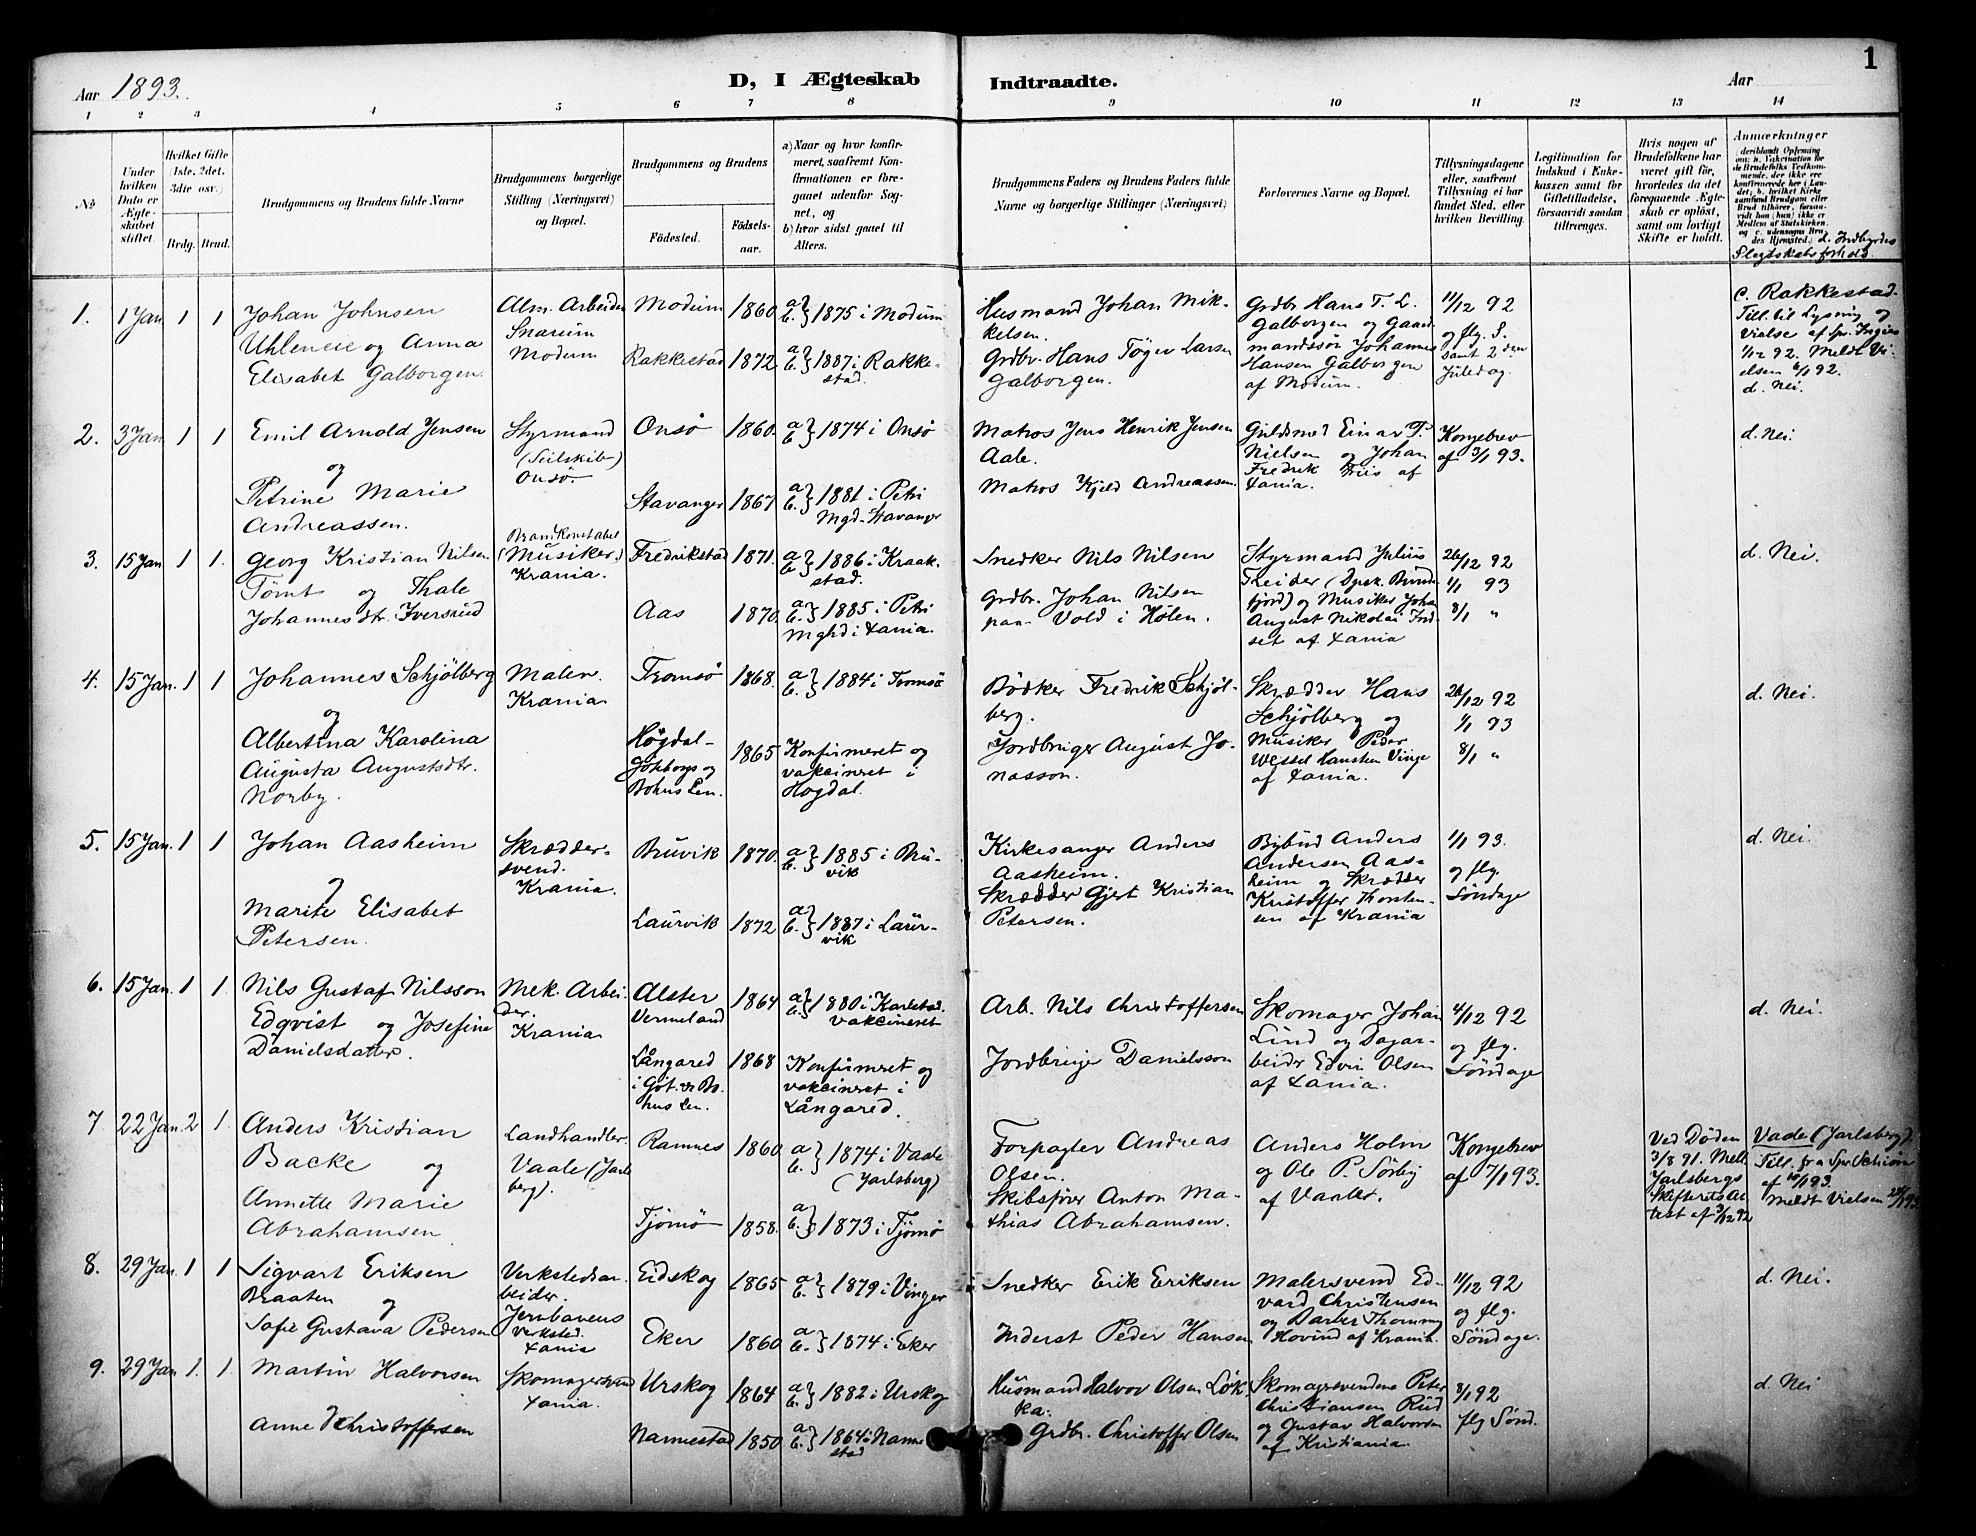 1
Aar 1893.
D, I Ægteskab Indtraadte.
Aar
1 2 3 4 5 6 7 8 9 10 11 12 13 14
№
Under hvilken Dato er Ægteskabet stiftet.
Hvilket Gifte (1ste, 2det, 3die osv.)
Brdg. Brud.
Brudgommens og Brudens fulde Navne
Brudgommens borgerlige Stilling (Næringsvei) og Bopæl.
Brudgommens og Brudens
Fødested.
Fødselsaar.
a) Naar og hvor konfirmeret, saafremt Konfirmationen er foregaaet udenfor Sognet, og
b) hvor sidst gaaet til Alters.
Brudgommens Faders og Brudens Faders fulde Navne og borgerlige Stillinger (Næringsvei)
Forlovernes Navne og Bopæl.
Tillysningsdagene eller, saafremt Tillysning ei har fundet Sted, efter hvilken Bevilling.
Legitimation for Indskud i Enkekassen samt for Giftetilladelse, forsaavidt saadan tiltrænges.
Hvis nogen af Brudefolkene har været gift før, hvorledes da det foregaaende Ægteskab er opløst, samt om lovligt Skifte er holdt.
Anmærkninger
d. Indbyrdes Slegtskabsforhold.
1. 1 Jan 1 1
Johan Johnsen
Uhleneie og Anna
Elisabet Galborgen.
Alm. Arbeider
Snarum
Modum
Modum 1860 a b } 1875 i Modum
Rakkestad 1872 a b } 1887 i Rakkestad.
Husmand Johan Mikkelsen.
Grdbr. Hans Tøger Larsen
Galborgen.
Grdbr Hans T. L.
Galborgen og Gaardmandssøn Johannes
Hansen Galborgen
af Modum.
11/12 92
og flg. S.
samt 2den
Juledag.
c. Rakkestad.
Till. til Lysning og
Vielse af Spr.
1/12 92. Meldt Vielsen 6/1 92.
d. Nei.
2. 3 Jan 1 1
Emil Arnold Jensen
og
Petrine Marie
Andreassen.
Styrmand
(Seilskib)
Onsø.
Onsø 1860. a b } 1874 i Onsø
Stavanger 1867 a b } 1881 i Petri
Mgd. Stavanger
Matros Jens Henrik Jensen
Aale.
Matros Kjeld Andreassen.
Guldsmed Einar T.
Nielsen og Johan
Fredrik Friis af
Xania.
Kongebrev
af 3/1 93.
d. Nei.
3. 15 Jan 1 1.
Georg Kristian Nilsen
Tømt og Thale
Johannesdtr. Iversrud
Brandkonstabel
(Musiker)
Krania.
Fredrikstad 1871. a b } 1886 i Kraakstad.
Aas 1870. a b } 1885 i Petri
Mghd i Xania.
Snedker Nils Nilsen
Grdbr. Johan Nilsen
paa Vold i Hølen.
Styrmand Julius
Treider (Dpsk. Bundefjord) og Musiker Johan
August Nikolai
af Xania
26/12 92
1/1 93
8/1 "
d. Nei.
4. 15 Jan. 1 1
Johannes Schjølberg
og
Albertina Karolina
Augusta Augustsdtr.
Norby.
Maler.
Krania
Tromsø 1868. a b } 1884 i Tromsø
Høgdal
Göteborgs og
Bohus Len.
1865 Konfirmeret og
vakcineret i
Høgdal.
Bødker Fredrik Schjølberg.
Jordbruger August Jonasson.
Skrædder Hans
Schjølberg og
Musiker Peder
Wessel Hansten Vinje
af Xania.
26/12 92
1/1 93
8/1 "
d. Nei.
5. 15 Jan. 1 1
Johan Aasheim
og
Marite Elisabet
Petersen.
Skræddersvend.
Krania.
Bruvik 1870. a b } 1885 i Bruvik
Laurvik 1872 a b } 1887 i Laurvik
Kirkesanger Anders
Aasheim.
Skrædder Gjert Kristian
Petersen.
Bybud Anders
Andersen Aasheim og Skrædder
Kristoffer Thorstensen af Krania
1/1 93.
og flg.
Søndage
d. Nei.
6. 15 Jan. 1 1
Nils Gustaf Nilsson
Edqvist og Josefine
Danielsdatter.
Mek. Arbeider.
Krania
Alster
Vermeland
1864 a b } 1880 i Karlstad.
vakcineret
Långared
i Göt. og Bohus Len.
1868 Konfirmeret og
vakcineret i
Långared.
Arb. Nils Christoffersen
Jordbruger Danielsson
Skomager Johan
Lind og Dagarbeider Edvin Olsen
af Xania.
4/12 92
og flg.
Søndage
d. Nei.
7 22 Jan. 2 1.
Anders Kristian
Backe og
Annette Marie
Abrahamsen
Landhandler.
Vaale (Jarlsberg).
Ramnes 1860 a b } 1874 i Vaale
(Jarlsberg)
Tjømø 1858. a b } 1873 i Tjømø
Forpagter Andreas
Olsen.
Skibsfører Anton Mathias Abrahamsen.
Anders Holm
og Ole P. Sørby
af Vaale.
Kongebrev
af 7/1 93.
Ved Døden
3/8 91. Mell.
Jarlsbergs
Skifterets Attest af 3/12 92
Vaale (Jarlsberg).
Till. fra Spr.
af 10/1 93.
Meldt Vielsen
8. 29 Jan. 1 1
Sigvart Eriksen
Braaten og
Sofie Gustava Pedersen
Verkstedsarbeider.
Jernbanens
Verksted.
Xania
Eidskog 1865 a b } 1879 i Vinger
Eker 1860 a b } 1874 i Eker
Snedker Erik Eriksen
Inderst Peder Hansen
Malersvend Edvard Christensen
og Barber Thommy
Hovind af Krania.
11/12 92
og flg.
Søndage.
d. Nei.
9. 29 Jan 1. 1.
Martin Halvorsen
Anne Christoffersen
Skomagersvend
Xania.
Urskog 1864 a b } 1882 i Urskog
Nannestad 1850 a b } 1864 i Nannestad
Husmand Halvor Olsen Løkka.
Grdbr. Christoffer Olsen
Skomagersvendene Peter
Christiansen Rud
og Gustav Halvorsen
af Kristiania
8/1 92
flg Sønd.
d. Nei